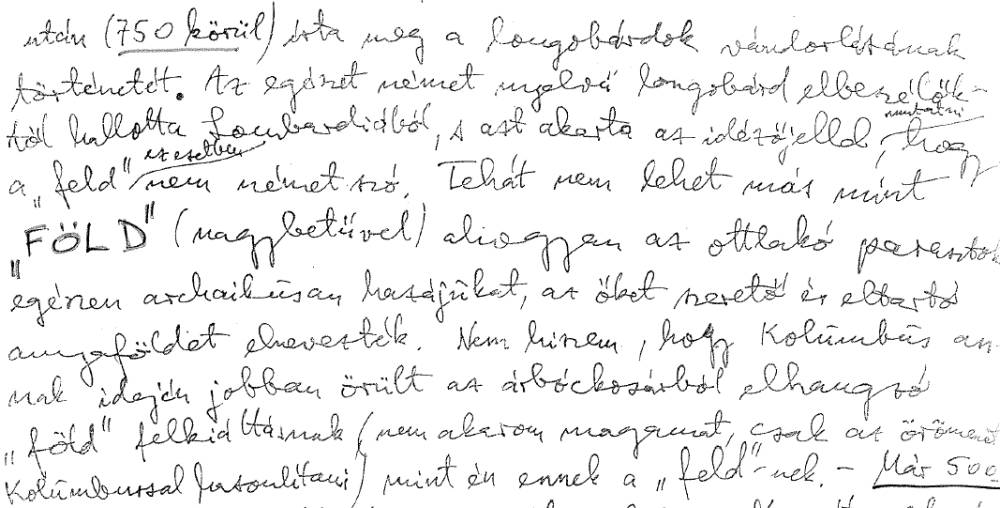 után (750 körül) írta meg a longobárdok vándorlásának
történetét. Az egészet német nyelvű longobárd elbeszélők-
től hallotta Lombardiából, s azt akarta az idézőjellel mutatni, hogy
a „feld" ez esetben nem német szó. Tehát nem lehet más mint
„FÖLD" (nagybetűvel) ahogyan az ottlakó parasztok
egészen archaikusan hazájukat, az őket szerető és eltartó
anyaföldet elnevezték. Nem hiszem, hogy Kolumbus an-
nak idején jobban örült az árbóckosárból elhangzó
„föld" felkiáltásnak (nem akarom magamat, csak az örömemet
Kolumbussal hasonlítani) mint én ennek a „feld"-nek. – Már 500